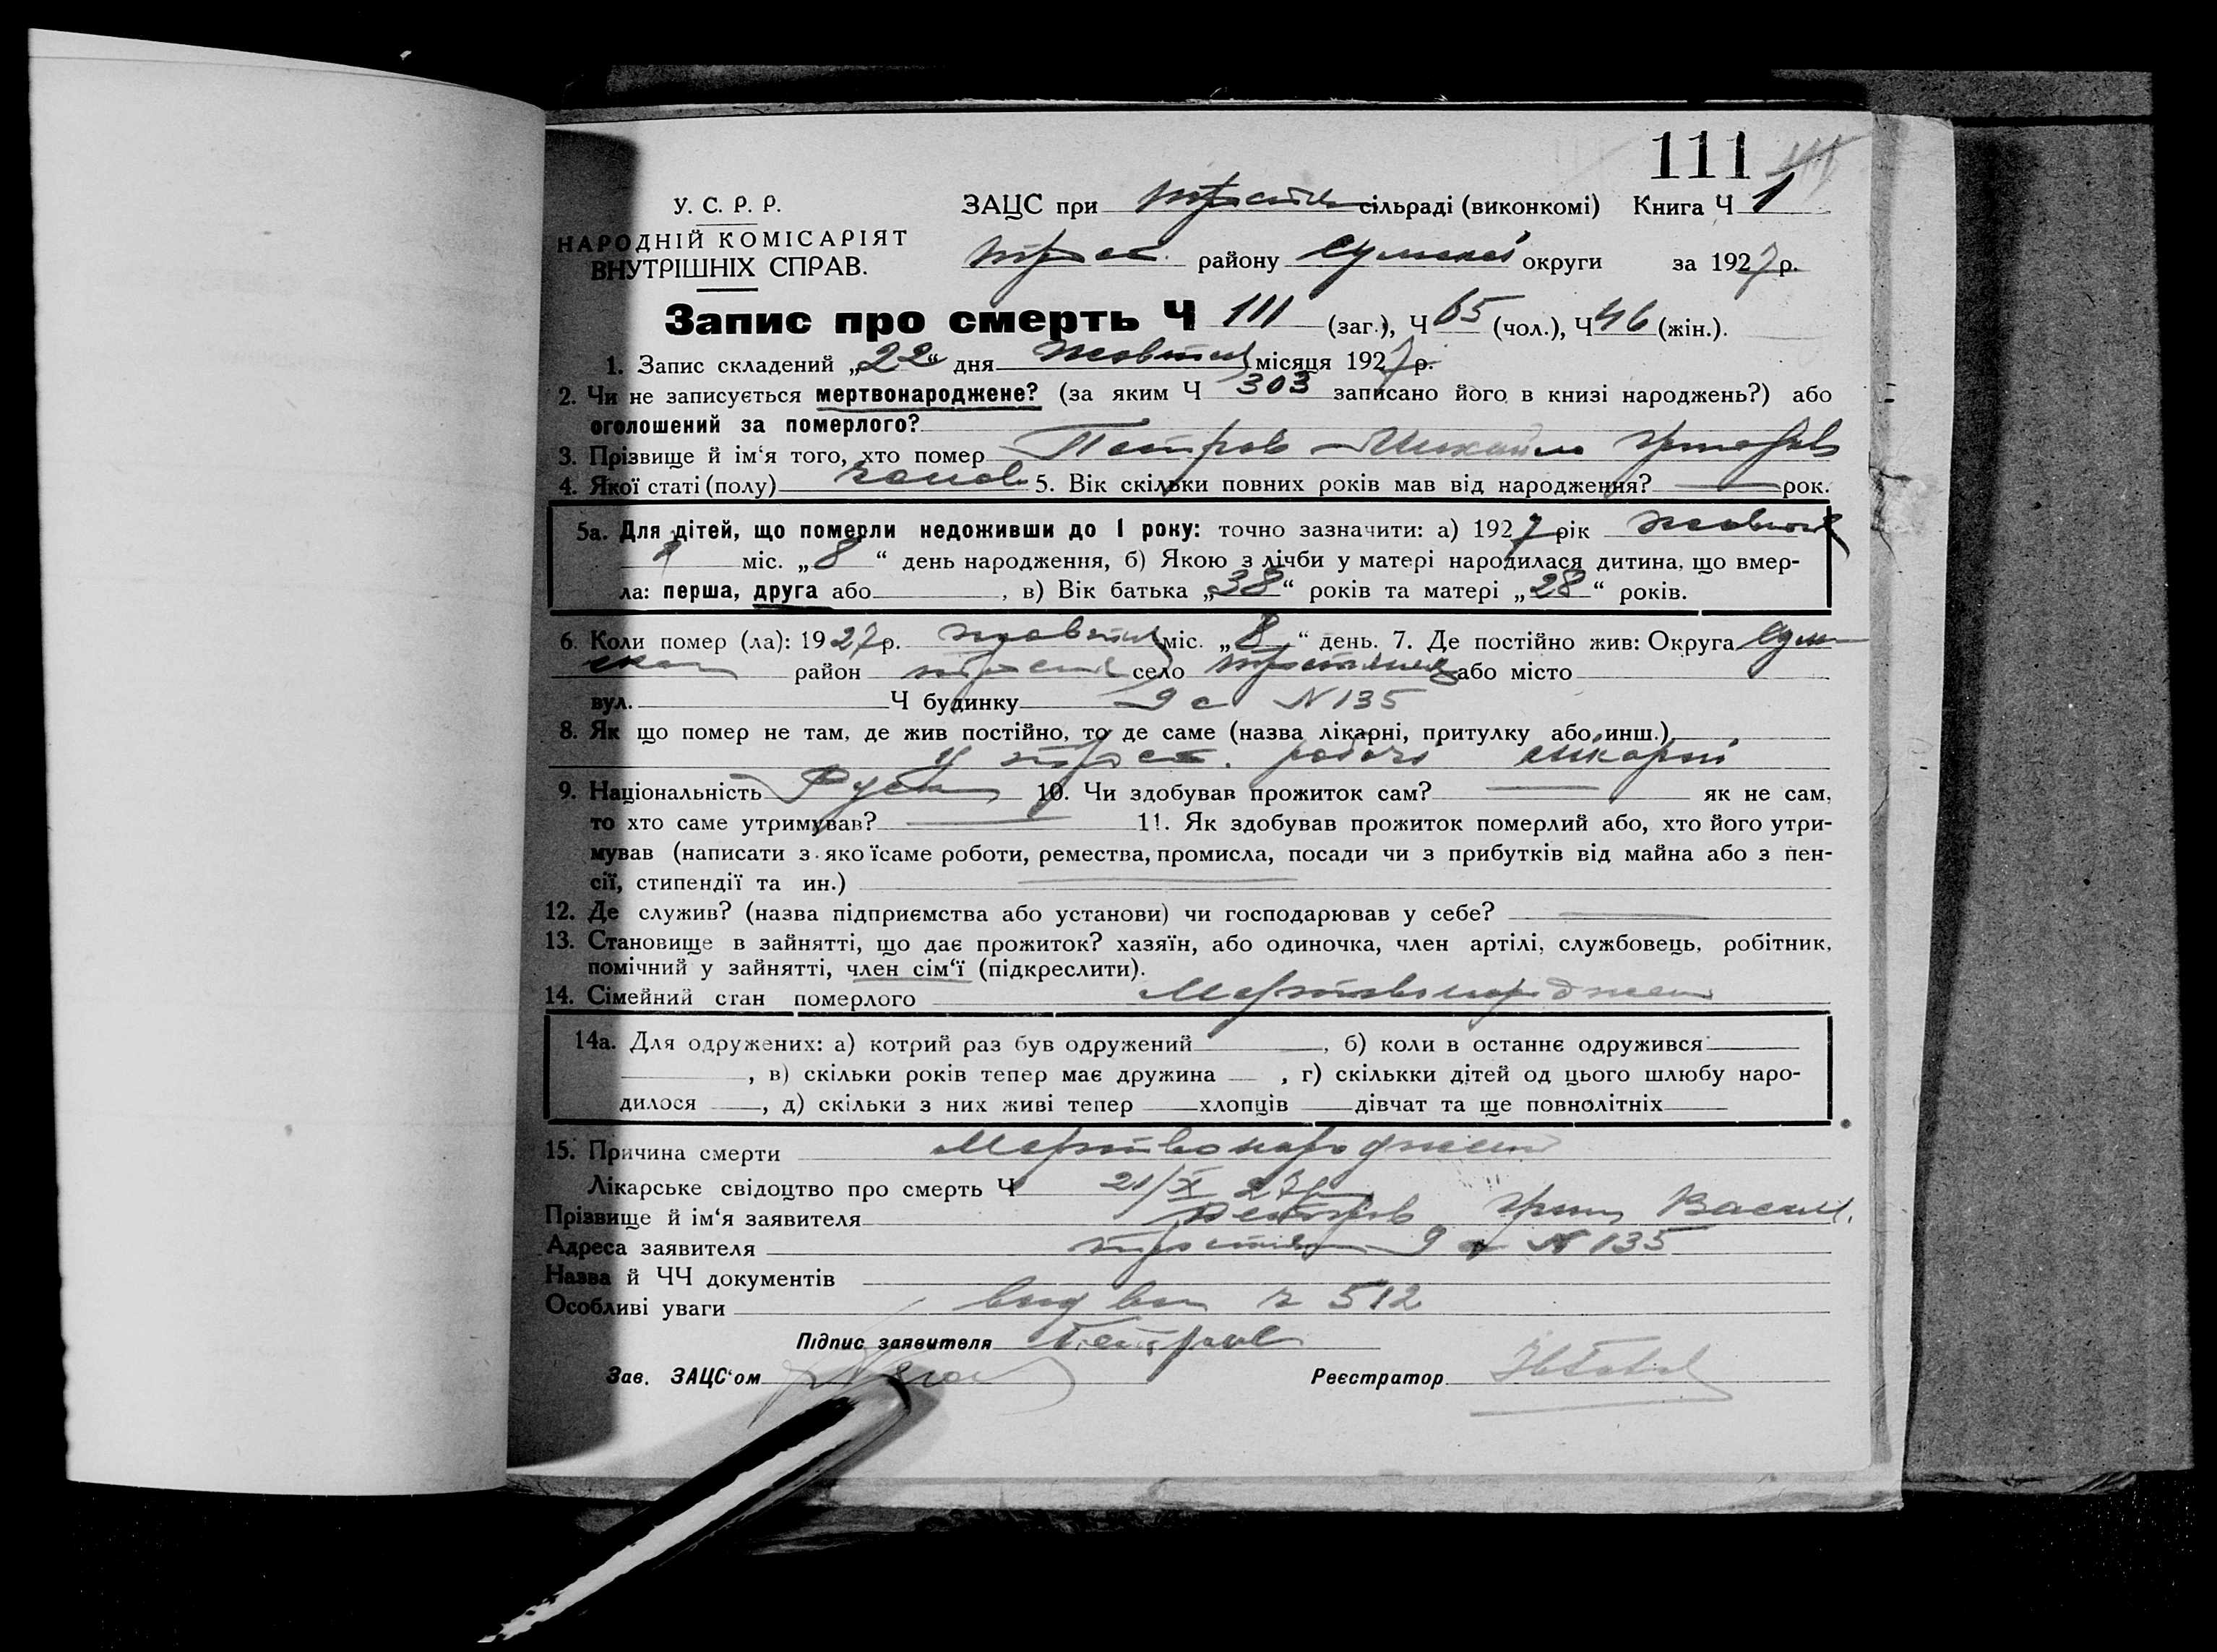 111 111
У. С. Р. Р. ЗАЦС при сільраді (виконкомі) Книга Ч 1
НАРОДНІЙ КОМІСАРІЯТ
ВНУТРІШНІХ СПРАВ. Трост. району Сумської округи за 1927 р.
Запис про смерть Ч 111 (заг.), Ч 65 (чол.), Ч 46 (жін.).
1. Запис складений „22“ дня Жовтня місяця 1927 р.
2. Чи не записується мертвонароджене? (за яким Ч 303 записано його в книзі народжень?) або
оголошений за померлого?
3. Прізвище й ім‘я того, хто помер Петров Михайло
4. Якої статі (полу) 5. Вік скільки повних років мав від народження? рок.
5а. Для дітей, що померли недоживши до 1 року: точно зазначити: а) 1927 рік Жовтня
міс. „8“ день народження, б) Якою з лічби у матері народилася дитина, що вмер-
ла: перша, друга або , в) Вік батька „38“ років та матері „28“ років.
6. Коли помер (ла): 1927 р. жовтня міс. „8“ день. 7. Де постійно жив: Округа Сум
ська район село або місто
вул. Ч будинку 9 с N 135
8. Як що помер не там, де жив постійно, то де саме (назва лікарні, притулку або инш.)
у трост. робочі лікарні
9. Національність 10. Чи здобував прожиток сам? як не сам,
то хто саме утримував? 11. Як здобував прожиток померлий або, хто його утри-
мував (написати з яко їсаме роботи, ремества, промисла, посади чи з прибутків від майна або з пен-
сії, стипендії та ин.)
12. Де служив? (назва підприємства або установи) чи господарював у себе?
13. Становище в зайнятті, що дає прожиток? хазяїн, або одиночка, член артілі, службовець, робітник,
помічний у зайнятті, член сім‘ї (підкреслити).
14. Сімейний стан померлого Мертвонароджен
14а. Для одружених: а) котрий раз був одружений , б) коли в останнє одружився
, в) скільки років тепер має дружина , г) скількки дітей од цього шлюбу наро-
дилося , д) скільки з них живі тепер хлопців дівчат та ще повнолітніх
15. Причина смерти Мертвонароджений
Лікарське свідоцтво про смерть Ч 21/X 27р
Прізвище й ім‘я заявителя Петров Григ Васил.
Адреса заявителя 9 с N 135
Назва й ЧЧ документів
Особливі уваги 512
Підпис заявителя Петров
Зав. ЗАЦС‘ом Реєстратор